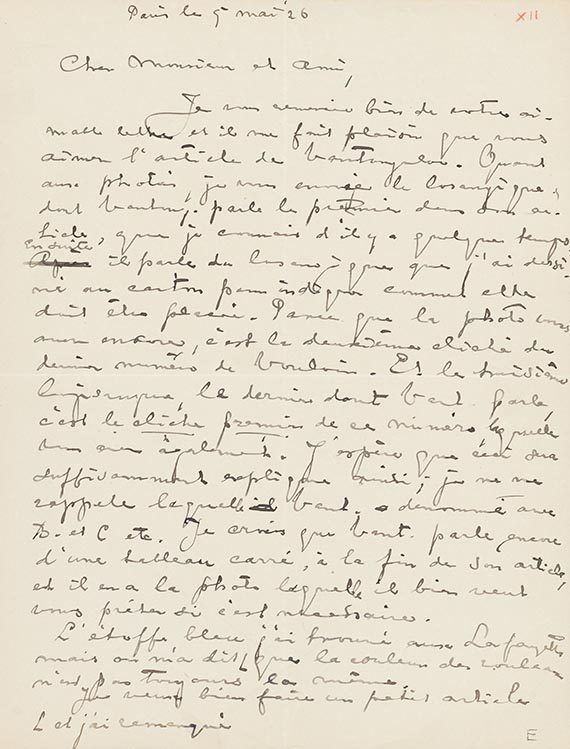 Paris le 5 mai 26
XII
Cher Monsieur et Ami,
Je vous remercie bien de votre ai-
mable lettre et il me fait plaisir que vous
aimez l'article de Vantongerloo. Quant
aux photos, je vous envoie le losangique,
dont Vanton. parle le premier dans son ar-
ticle, que je connais d'il y a quelque temps.
Ensuite
il parle du losangique que j'ai dessi-
né au carton pour indiquer comment elle
doit être placée. Parce que la photo vous
avez encore, c'est la deuxième cliché du
dernier numéro de Vouloir. Et la troisième
losangique, le dernier dont Vant. parle,
c'est le cliché premier de ce numéro laquelle
vous avez également. J'espère que c'est
suffisamment expliqué ainsi; je ne me
rappele laquelle Vant. a dénommé avec
B. et C etc. Je crois que Vant. parle encore
d'une tableau carré, à la fin de son article,
et il en a la photo laquelle il bien veut
vous prêter si c'est nécessaire.
L'étoffe bleu j'ai trouvé aux Lafayette
mais on m'a dit que la couleur des rouleaux
n'est pas toujours la même.
Je veux bien faire un petit article
et j'ai remarqué
E